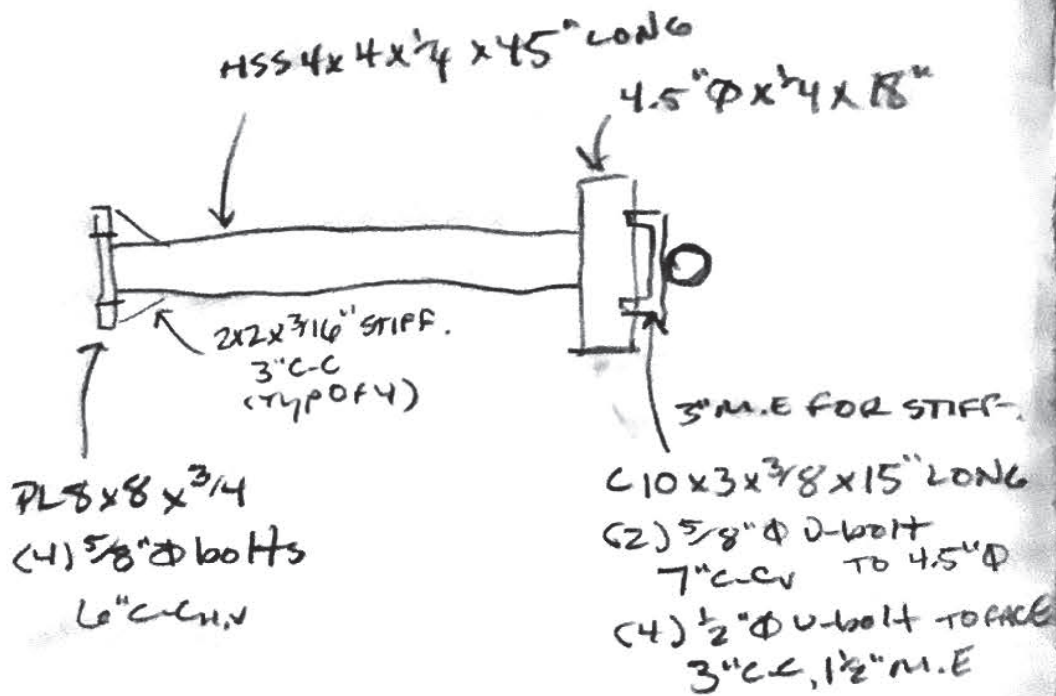 HSS 4x4x1/4 x 45" LONG
4.5"Φ x 1/4 x 18"
2x2x3/16" STIFF.
3"C-C
(TYP OF 4)
3" M.E FOR STIFF.
PL 8x8x3/4
(4) 5/8"Φ bolts
6"C-C H,V
C10x3x3/8x15" LONG
(2) 5/8"Φ U-bolt
7"C-C V TO 4.5"Φ
(4) 1/2"Φ U-bolt TO FACE
3"C-C, 1 1/2" M.E